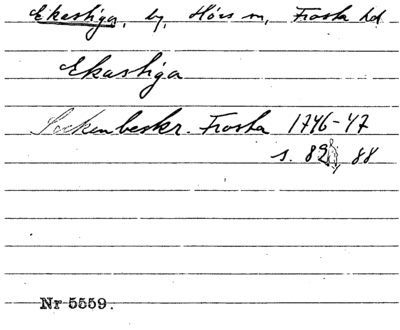 Ekastiga, by, Hörs sn, Frosta hd
Ekastiga
Sockenbeskr. Frosta 1746-47
s. 82, 88
Nr 5559.